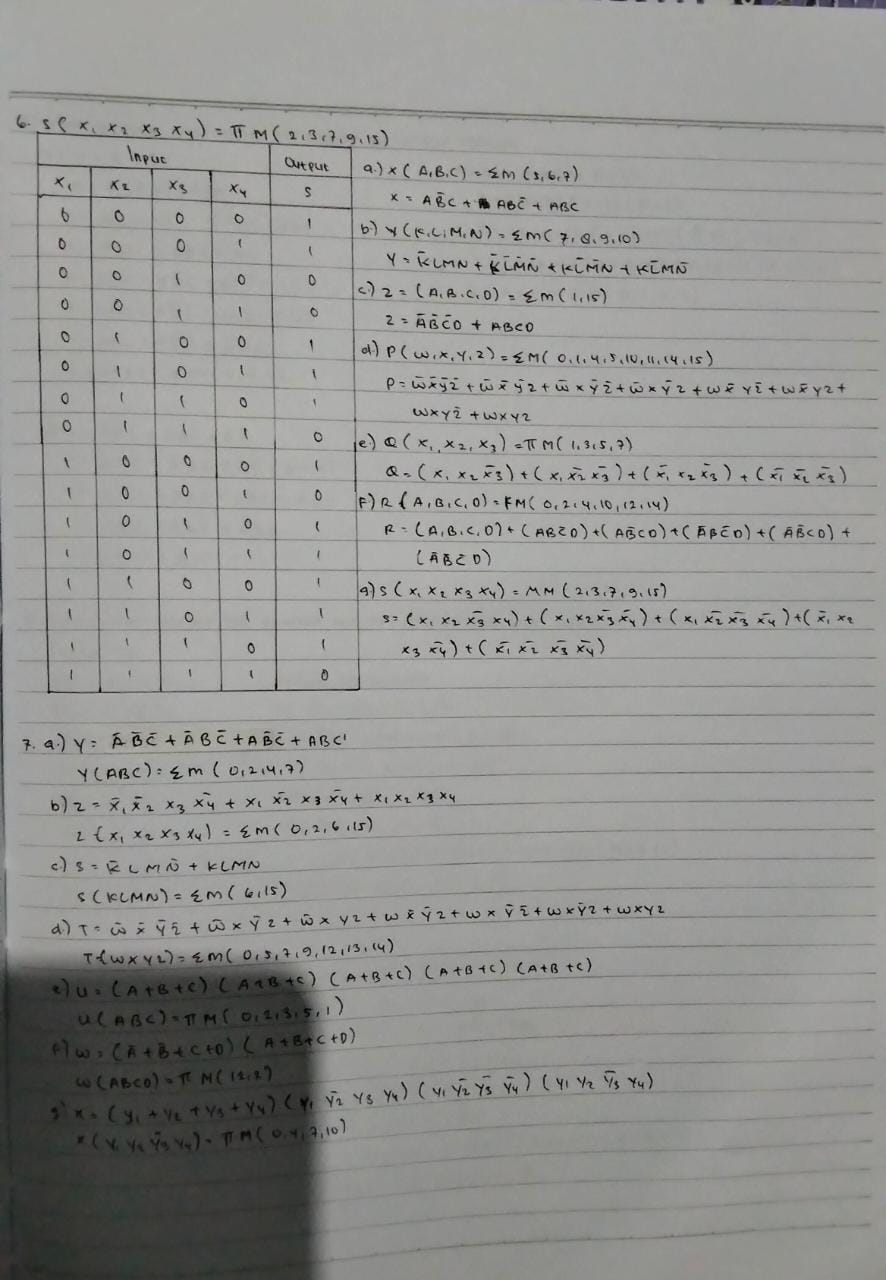 6. S( x₁ x₂ x₃ x₄) = π M( 2,3,7,9,15)
Input Output
x₁ x₂ x₃ x₄ S
0 0 0 0 1
0 0 0 1 1
0 0 1 0 0
0 0 1 1 0
0 1 0 0 1
0 1 0 1 1
0 1 1 0 1
0 1 1 1 0
1 0 0 0 1
1 0 0 1 0
1 0 1 0 1
1 0 1 1 1
1 1 0 0 1
1 1 0 1 1
1 1 1 0 1
1 1 1 1 0
a.) X ( A,B,C) = Σm (5,6,7)
X = AB̄C + ABC̄ + ABC
b) Y (K,L,M,N) = Σm( 7, 8,9,10)
Y = K̄LMN + K̄L̄M̄N̄ + KL̄M̄N + KL̄MN̄
c.) Z = (A,B,C,D) = Σm(1,15)
Z = ĀB̄C̄D + ABCD
d.) P( w,x,y,z) = Σm( 0,1,4,5,10,11,14,15)
P = w̄x̄ȳz̄ + w̄x̄ȳz + w̄xȳz̄ + w̄xȳz + wx̄yz̄ + wx̄yz +
wxyz̄ + wxyz
e.) Q ( x₁, x₂, x₃) = π M( 1,3,5,7)
Q = ( x₁ x₂ x̄₃) + ( x₁ x̄₂ x̄₃) + ( x̄₁ x₂ x̄₃) + ( x̄₁ x̄₂ x̄₃)
F) R ( A,B,C,D) = M( 0,2,4,10,12,14)
R = (A,B,C,D) + ( ABC̄D) + ( AB̄CD) + ( ĀBC̄D) + ( ĀB̄CD) +
( ĀB̄C̄D)
g) S ( x₁ x₂ x₃ x₄) = MM (2,3,7,9,15)
S = (x₁ x₂ x̄₃ x₄) + ( x₁ x₂ x̄₃ x̄₄) + ( x₁ x̄₂ x̄₃ x̄₄) + ( x̄₁ x₂
x₃ x̄₄) + ( x̄₁ x̄₂ x̄₃ x̄₄)
7. a.) Y = ĀB̄C̄ + ĀBC̄ + AB̄C̄ + ABC
Y(ABC) = Σm ( 0,2,4,7)
b) Z = x̄₁ x̄₂ x₃ x̄₄ + x₁ x̄₂ x₃ x̄₄ + x₁ x₂ x₃ x₄
Z { x₁ x₂ x₃ x₄) = Σm( 0,2,6,15)
c.) S = K̄LMN̄ + KLMN
S (KLMN) = Σm( 6,15)
d) T = w̄x̄ȳz̄ + w̄xȳz + w̄xyz + wx̄ȳz + wxȳz̄ + wxȳz + wxyz
T{wxyz) = Σm( 0,5,7,9,12,13,14)
e) U = (A+B+C) (A+B+C) (A+B+C) (A+B+C) (A+B+C)
U( ABC) = π M( 0,2,3,5,1)
F) W = (Ā+B̄+C+D) ( A+B+C+D)
W (ABCD) = π M( 12,2)
g) X = ( y₁ + y₂ + y₃ + y₄) ( y₁ ȳ₂ y₃ y₄) ( y₁ ȳ₂ ȳ₃ ȳ₄) ( y₁ y₂ ȳ₃ y₄)
X ( y₁ y₂ ȳ₃ y₄) = π M( 0,4,7,10)